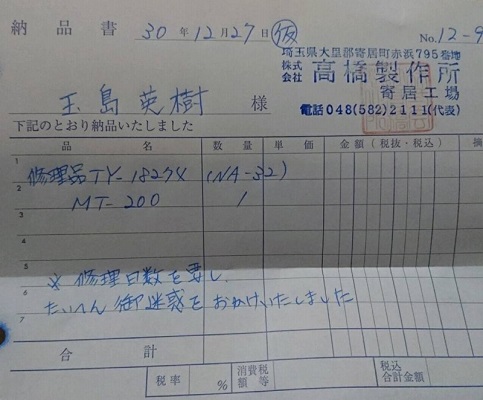 納品書 30年12月27日 (仮) No.12-9
埼玉県大里郡寄居町赤浜795番地
株式会社 高橋製作所
寄居工場
電話048(582)2111(代表)
玉島英樹 様
下記のとおり納品いたしました
品名 数量 単価 金額(税抜・税込) 摘
1 修理品TY-1827X (NA-32)
2 MT-200 1
3
4
5
6 ※修理日数を要し、
7 たいへん御迷惑をおかけいたしました
合計
税率 % 消費税額等 税込合計金額